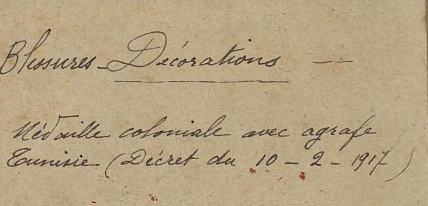 Blessures - Décorations —
Médaille coloniale avec agrafe
Tunisie (Décret du 10 - 2 - 1917)